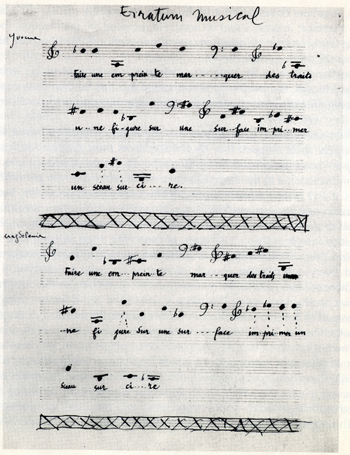 Erratum Musical
Yvonne
faire une em prein te mar - - - - quer des traits
u - ne fi - gure sur une sur - face im - pri - mer
un sceau sur ci - - - re.
Magdeleine
faire une em - - prein - te mar - - quer des traits une
ne fi gure sur une sur - - - - face im pri mer un
sceau sur ci - re